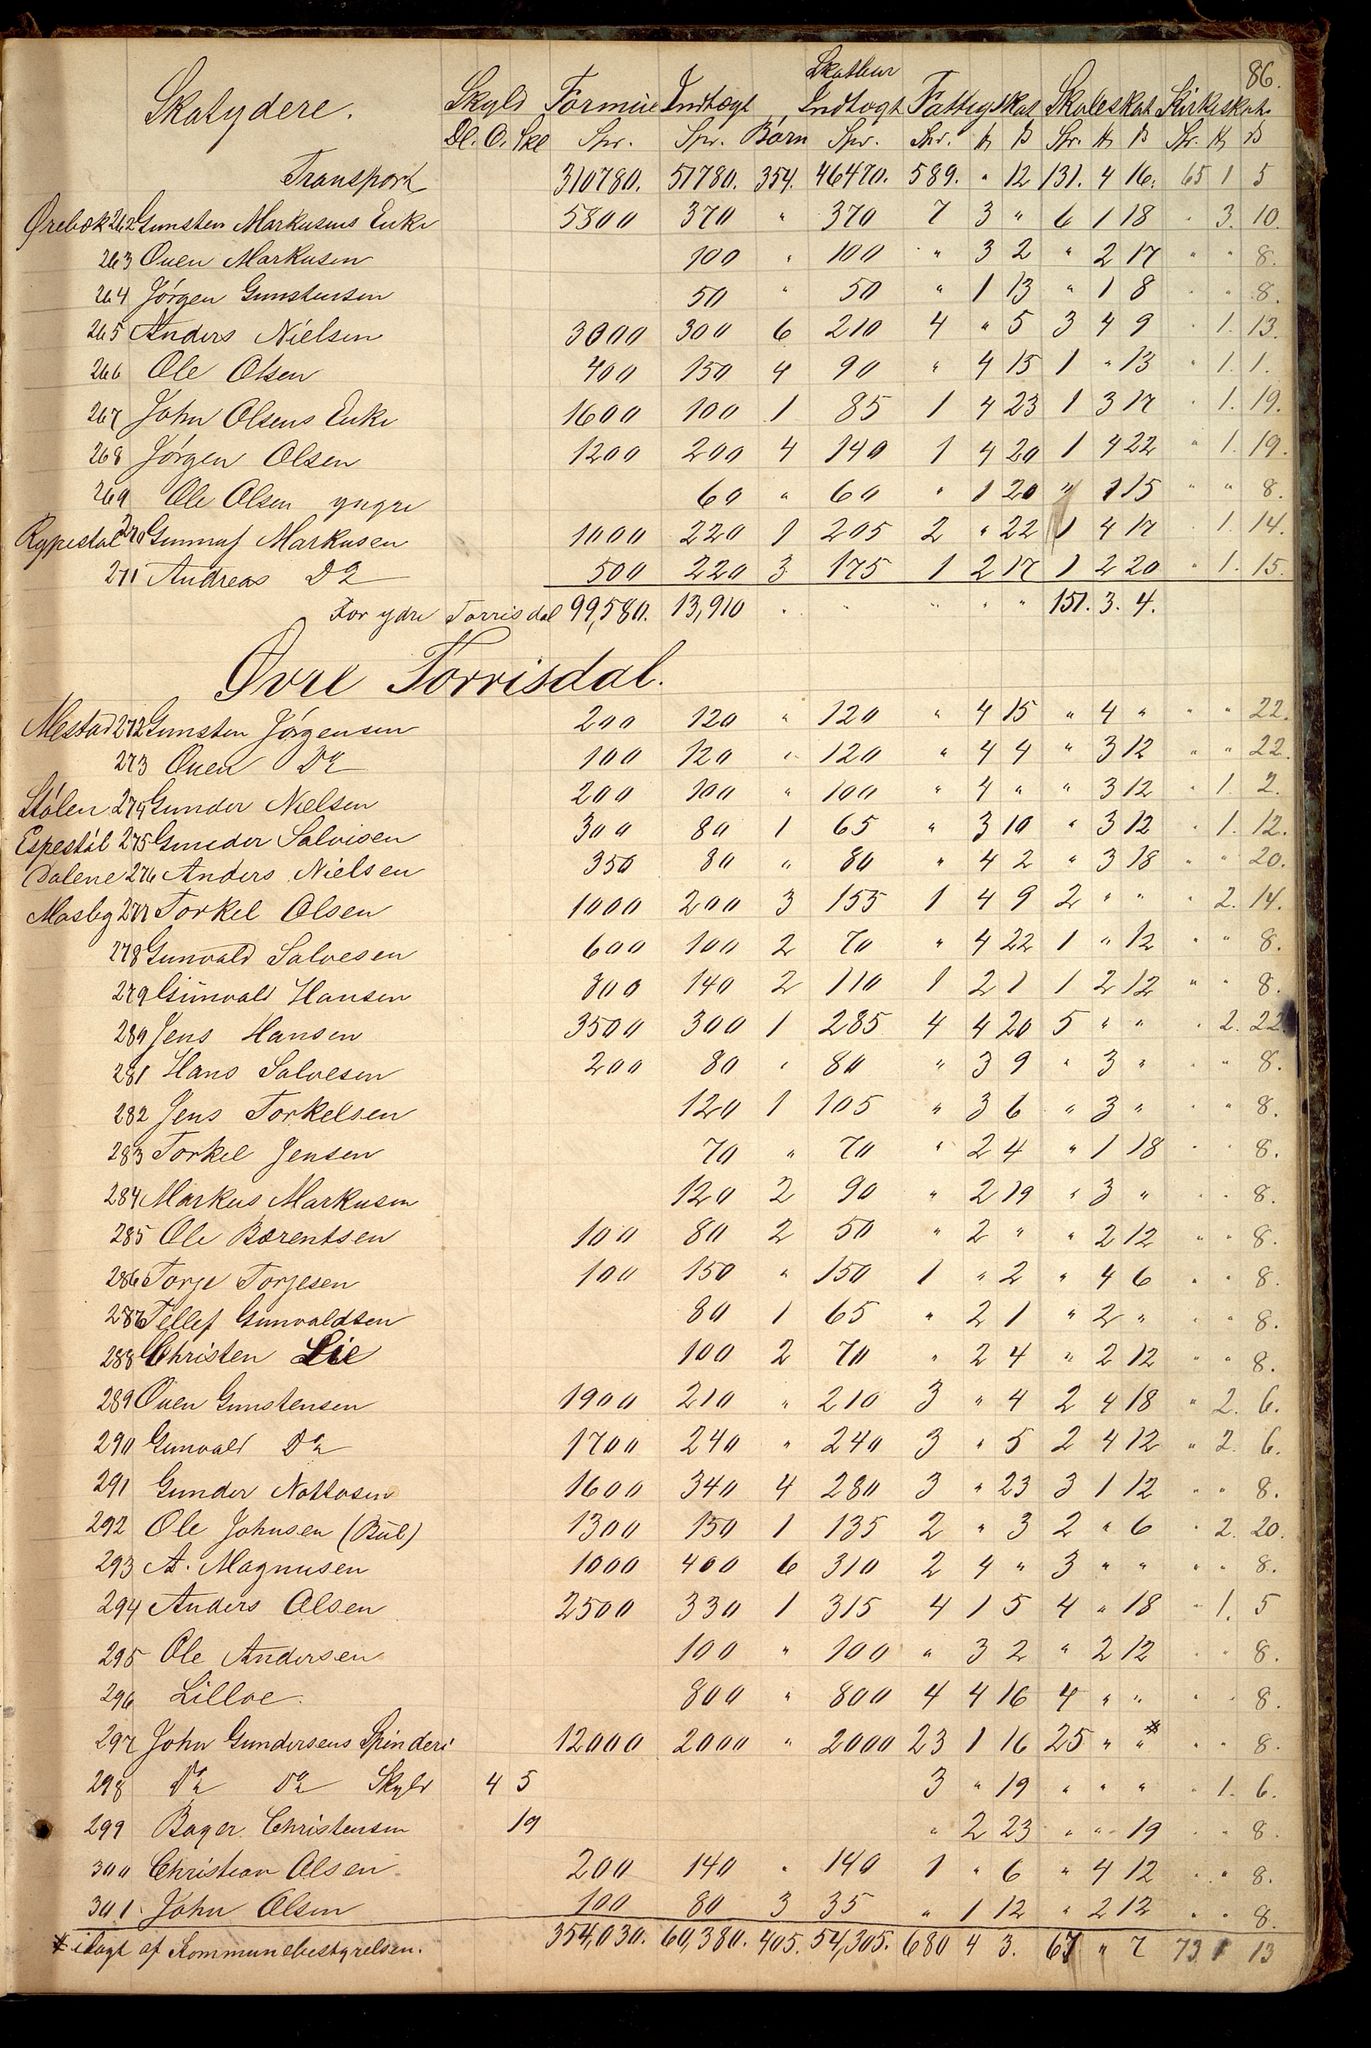 86.
Skatydere. Skyld Formue Indtægt Skatbar Indtægt Fattigskat Skoleskat Kirkeskat
Dl. O. Skl Spr. Spr. Børn Spr. Spr. # ß Spr. # ß Spr. # ß
Transport 310780. 51780. 354. 46470. 589. " 12 131. 4 16. 65 1 5
Ørebæk 262 Gunsten Markusens Enke 5800 370 " 370 7 3 " 6 1 18 " 3. 10.
263 Ouen Markusen 100 " 100 " 3 2 " 2 17 " " 8.
264 Jørgen Gunstensen 50 " 50 " 1 13 " 1 8 " " 8.
265 Anders Nielsen 3000 300 6 210 4 " 5 3 4 9 " 1. 13.
266 Ole Olsen 400 150 4 90 " 4 15 1 " 13 " 1. 1.
267 John Olsens Enke 1600 100 1 85 1 4 23 1 3 17 " 1. 19.
268 Jørgen Olsen 1200 200 4 140 1 4 20 1 4 22 " 1. 19.
269 Ole Olsen yngre 60 " 60 " 1 20 " 1 15 " " 8.
Rypestøl 270 Gunnuf Markusen 1000 220 1 205 2 " 22 1 4 17 " 1. 14.
271 Andreas Do 500 220 3 175 1 2 17 1 2 20 " 1. 15.
For ydre Torrisdal 99,580. 13,910 " " " " " 151. 3. 4.
Øvre Torrisdal.
Mestad 272 Gunsten Jørgensen 200 120 " 120 " 4 15 " 4 " " " 22.
273 Ouen Do 100 120 " 120 " 4 4 " 3 12 " " 22.
Stølen 274 Gunder Nielsen 200 100 " 100 " 4 " " 3 12 " 1. 2.
Espestøl 275 Gunder Salvisen 300 80 1 65 " 3 10 " 3 12 " 1. 12.
Dalene 276 Anders Nielsen 350 80 " 80 " 4 2 " 3 18 " " 20.
Mosby 277 Torkel Olsen 1000 200 3 155 1 4 9 2 " " " 2. 14.
278 Gunvald Salvesen 600 100 2 70 " 4 22 1 " 12 " " 8.
279 Gunvald Hansen 800 140 2 110 1 2 1 1 2 12 " " 8.
280 Jens Hansen 3500 300 1 285 4 4 20 5 " " " 2. 22
281 Hans Salvesen 200 80 " 80 " 3 9 " 3 " " " 8.
282 Jens Torkelsen 120 1 105 " 3 6 " 3 " " " 8.
283 Torkel Jensen 70 " 70 " 2 4 " 1 18 " " 8.
284 Markus Markusen 120 2 90 " 2 19 " 3 " " " 8.
285 Ole Bærentsen 100 80 2 50 " 2 " " 2 12 " " 8.
286 Torje Torjesen 100 150 " 150 1 " 2 " 4 6 " " 8.
287 Tellef Gunvaldsen 80 1 65 " 2 1 " 2 " " " 8.
288 Christen Lie 100 2 70 " 2 4 " 2 12 " " 8.
289 Ouen Gunstensen 1900 210 " 210 3 " 4 2 4 18 " 2. 6.
290 Gunvald Do 1700 240 " 240 3 " 5 2 4 12 " 2. 6.
291 Gunder Nottosen 1600 340 4 280 3 " 23 3 1 12 " " 8.
292 Ole Johnsen (Bül) 1300 150 1 135 2 " 3 2 " 6 " 2. 20.
293 A. Magnusen 1000 400 6 310 2 4 " 3 " " " " 8.
294 Anders Olsen 2500 330 1 315 4 1 5 4 " 18 " 1. 5
295 Ole Andersen 100 " 100 " 3 2 " 2 12 " " 8.
296 Lilloe. 800 " 800 4 4 16 4 " " " " 8.
297 John Gundersens Spinderi 12000 2000 " 2000 23 1 16 25 " "* " " 8.
298 Do Do Skyld 4 5 3 " 19 " " " " 1. 6.
299 Bager Christensen 19 " 2 23 " " 19 " " 8.
300 Christian Olsen 200 140 " 140 1 " 6 " 4 12 " " 8.
301. John Olsen 100 80 3 35 " 1 12 " 2 12 " " 8.
* ilagt af Kommunebestyrelsen. 354,030. 60,380. 405. 54,305. 680 4 3. 67 " 7 73. 1 13